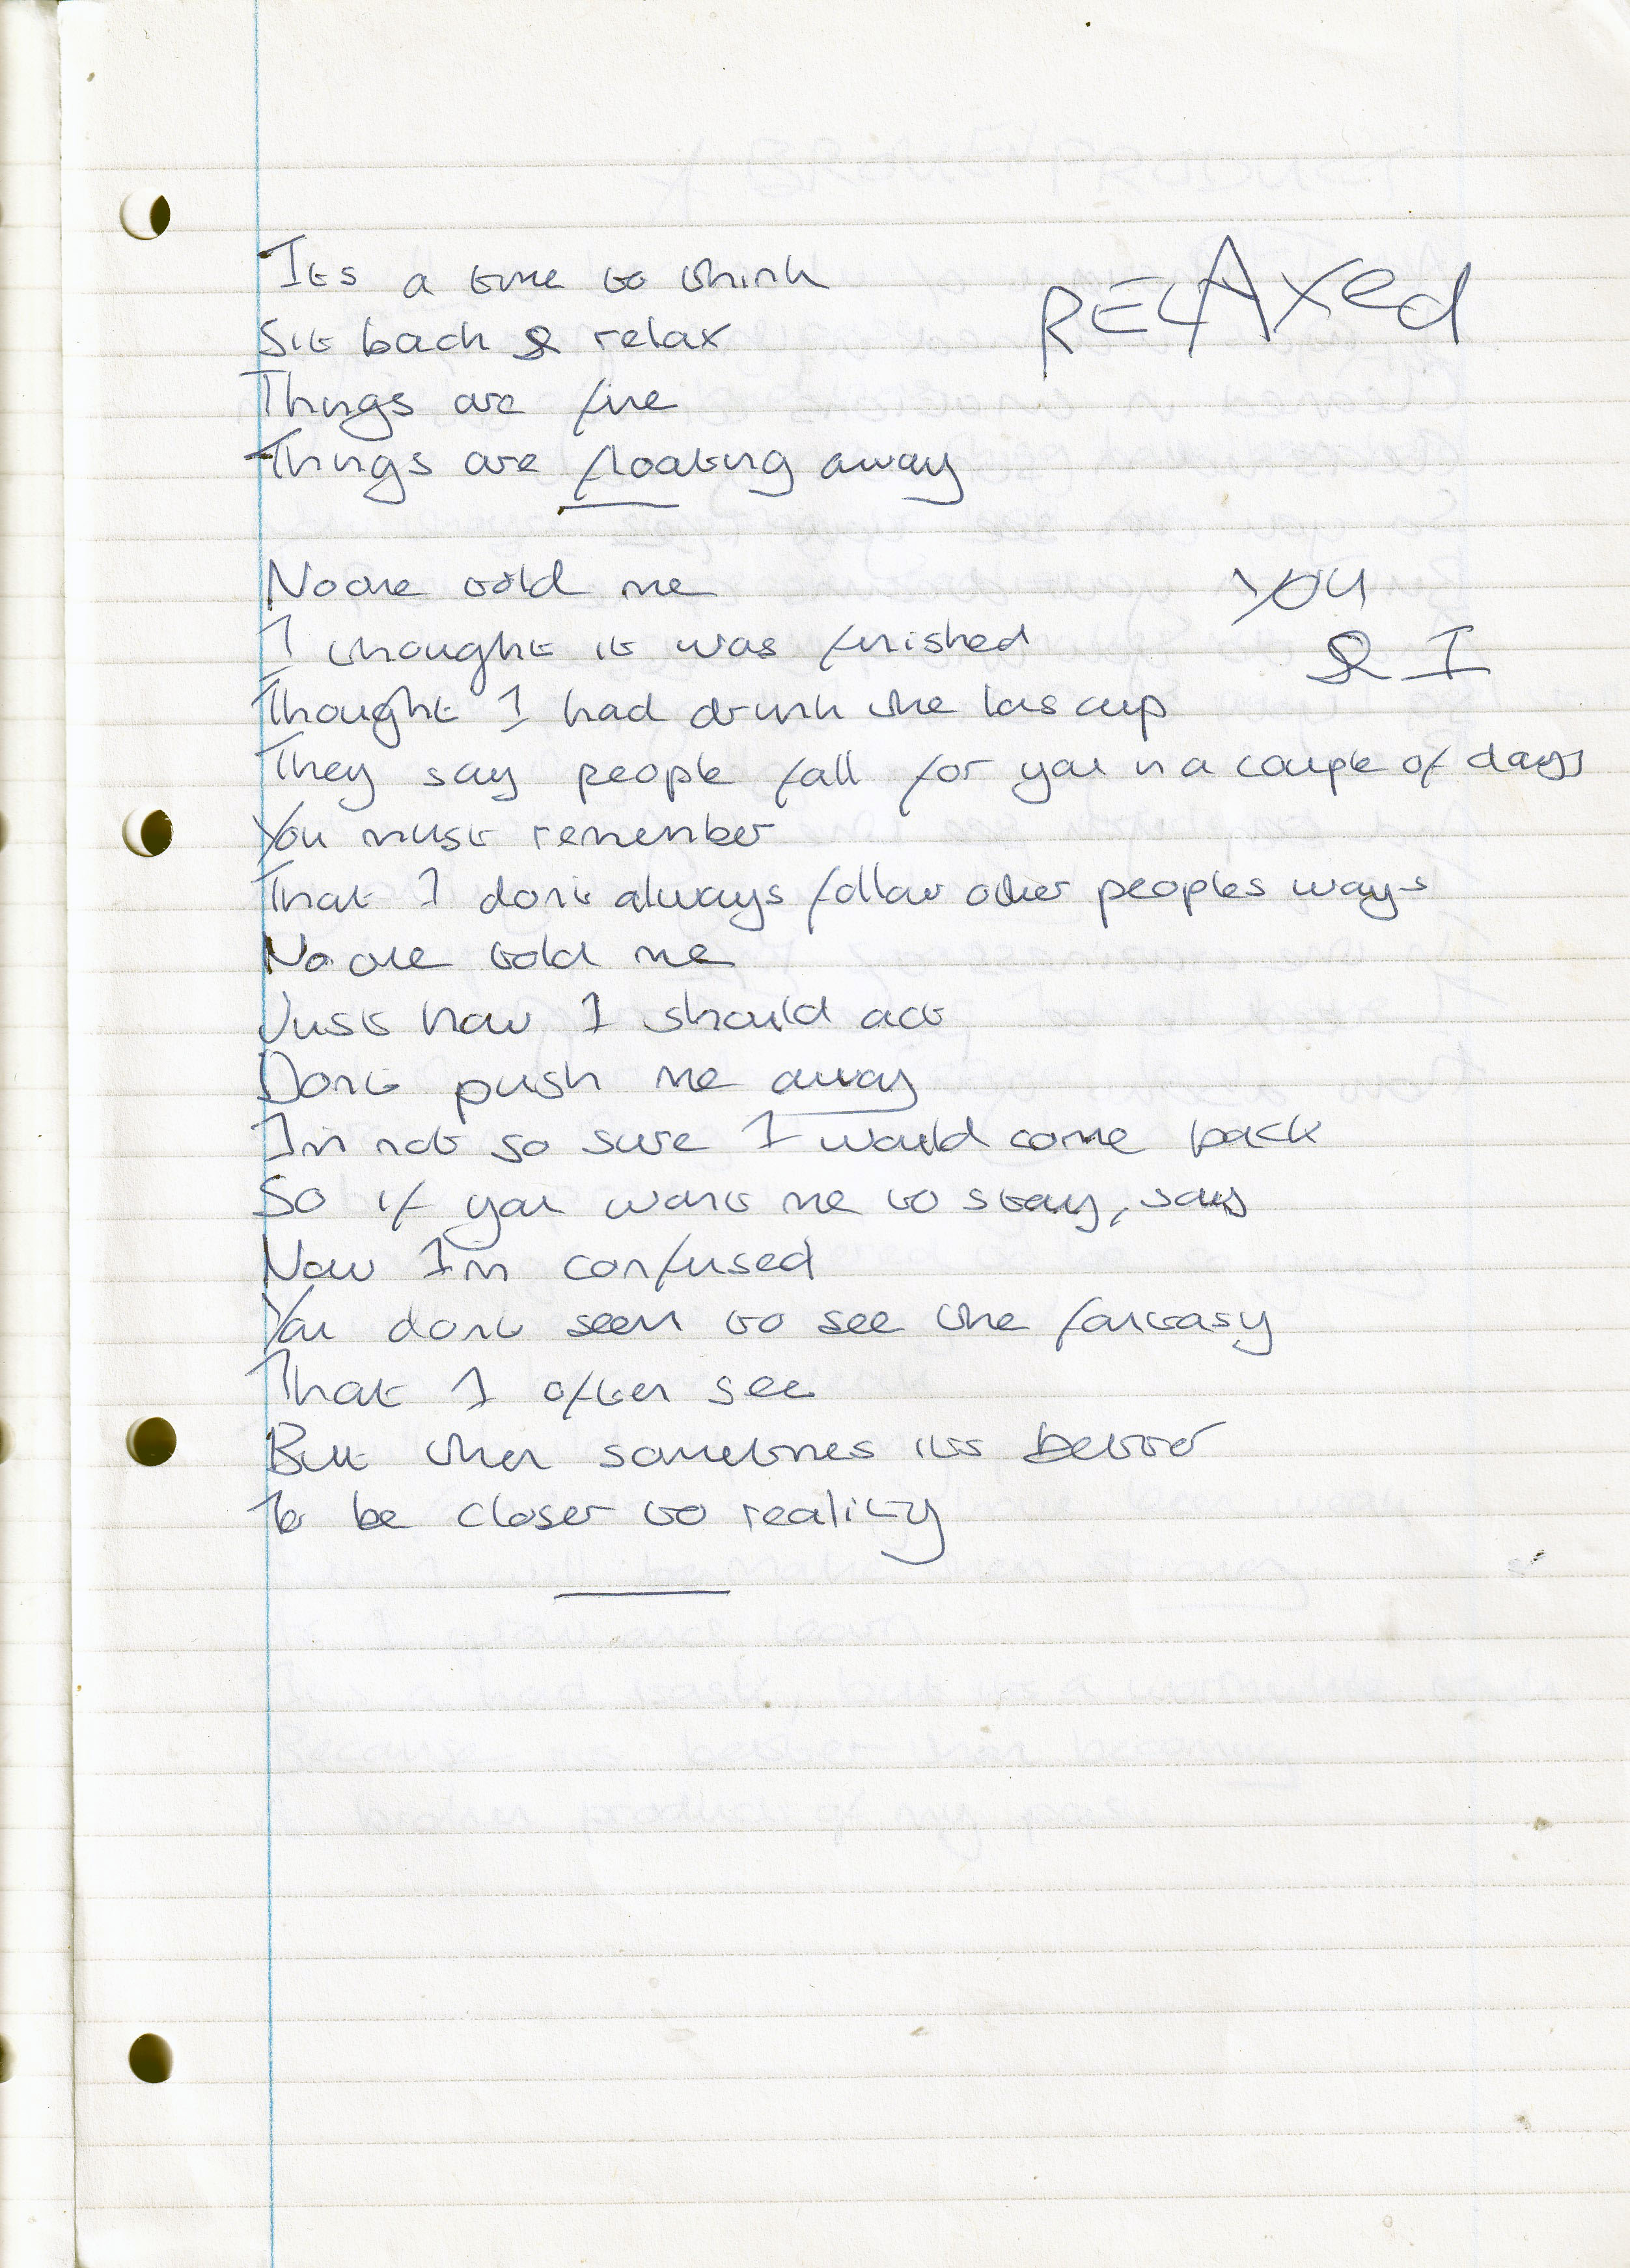 Its a time to think
RELAxed
Sit back & relax
Things are fine
Things are floating away
Noone told me
YOU
& I
I thought it was finished
Thought I had drunk the las cup
They say people fall for you in a couple of days
You must remember
That I dont always follow other peoples ways
No one told me
Just how I should act
Dont push me away
Im not so sure I would come back
So if you want me to stay, say
Now Im confused
You dont seem to see the fantasy
That I often see
But then sometimes its better
To be closer to reality